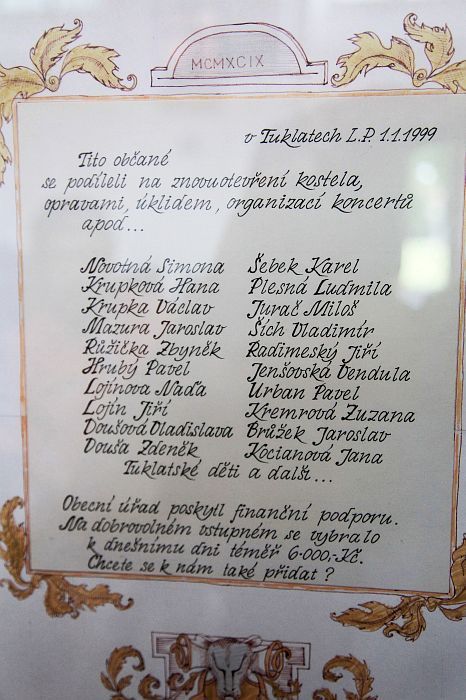 MCMXCIX
v Tuklatech L.P. 1.1.1999
Tito občané
se podíleli na znovuotevření kostela,
opravami, úklidem, organizací koncertů
apod...
Novotná Simona Šebek Karel
Krupková Hana Plesná Ludmila
Krupka Václav Jurač Miloš
Mazura Jaroslav Ších Vladimír
Růžička Zbyněk Radimeský Jiří
Hrubý Pavel Jenšovská Vendula
Lojínova Naďa Urban Pavel
Lojín Jiří Kremrová Zuzana
Doušová Vladislava Brůžek Jaroslav
Douša Zdeněk Kocianová Jana
Tuklatské děti a další...
Obecní úřad poskytl finanční podporu.
Na dobrovolném vstupném se vybralo
k dnešnimu dni téměř 6.000,-Kč.
Chcete se k nám také přidat ?